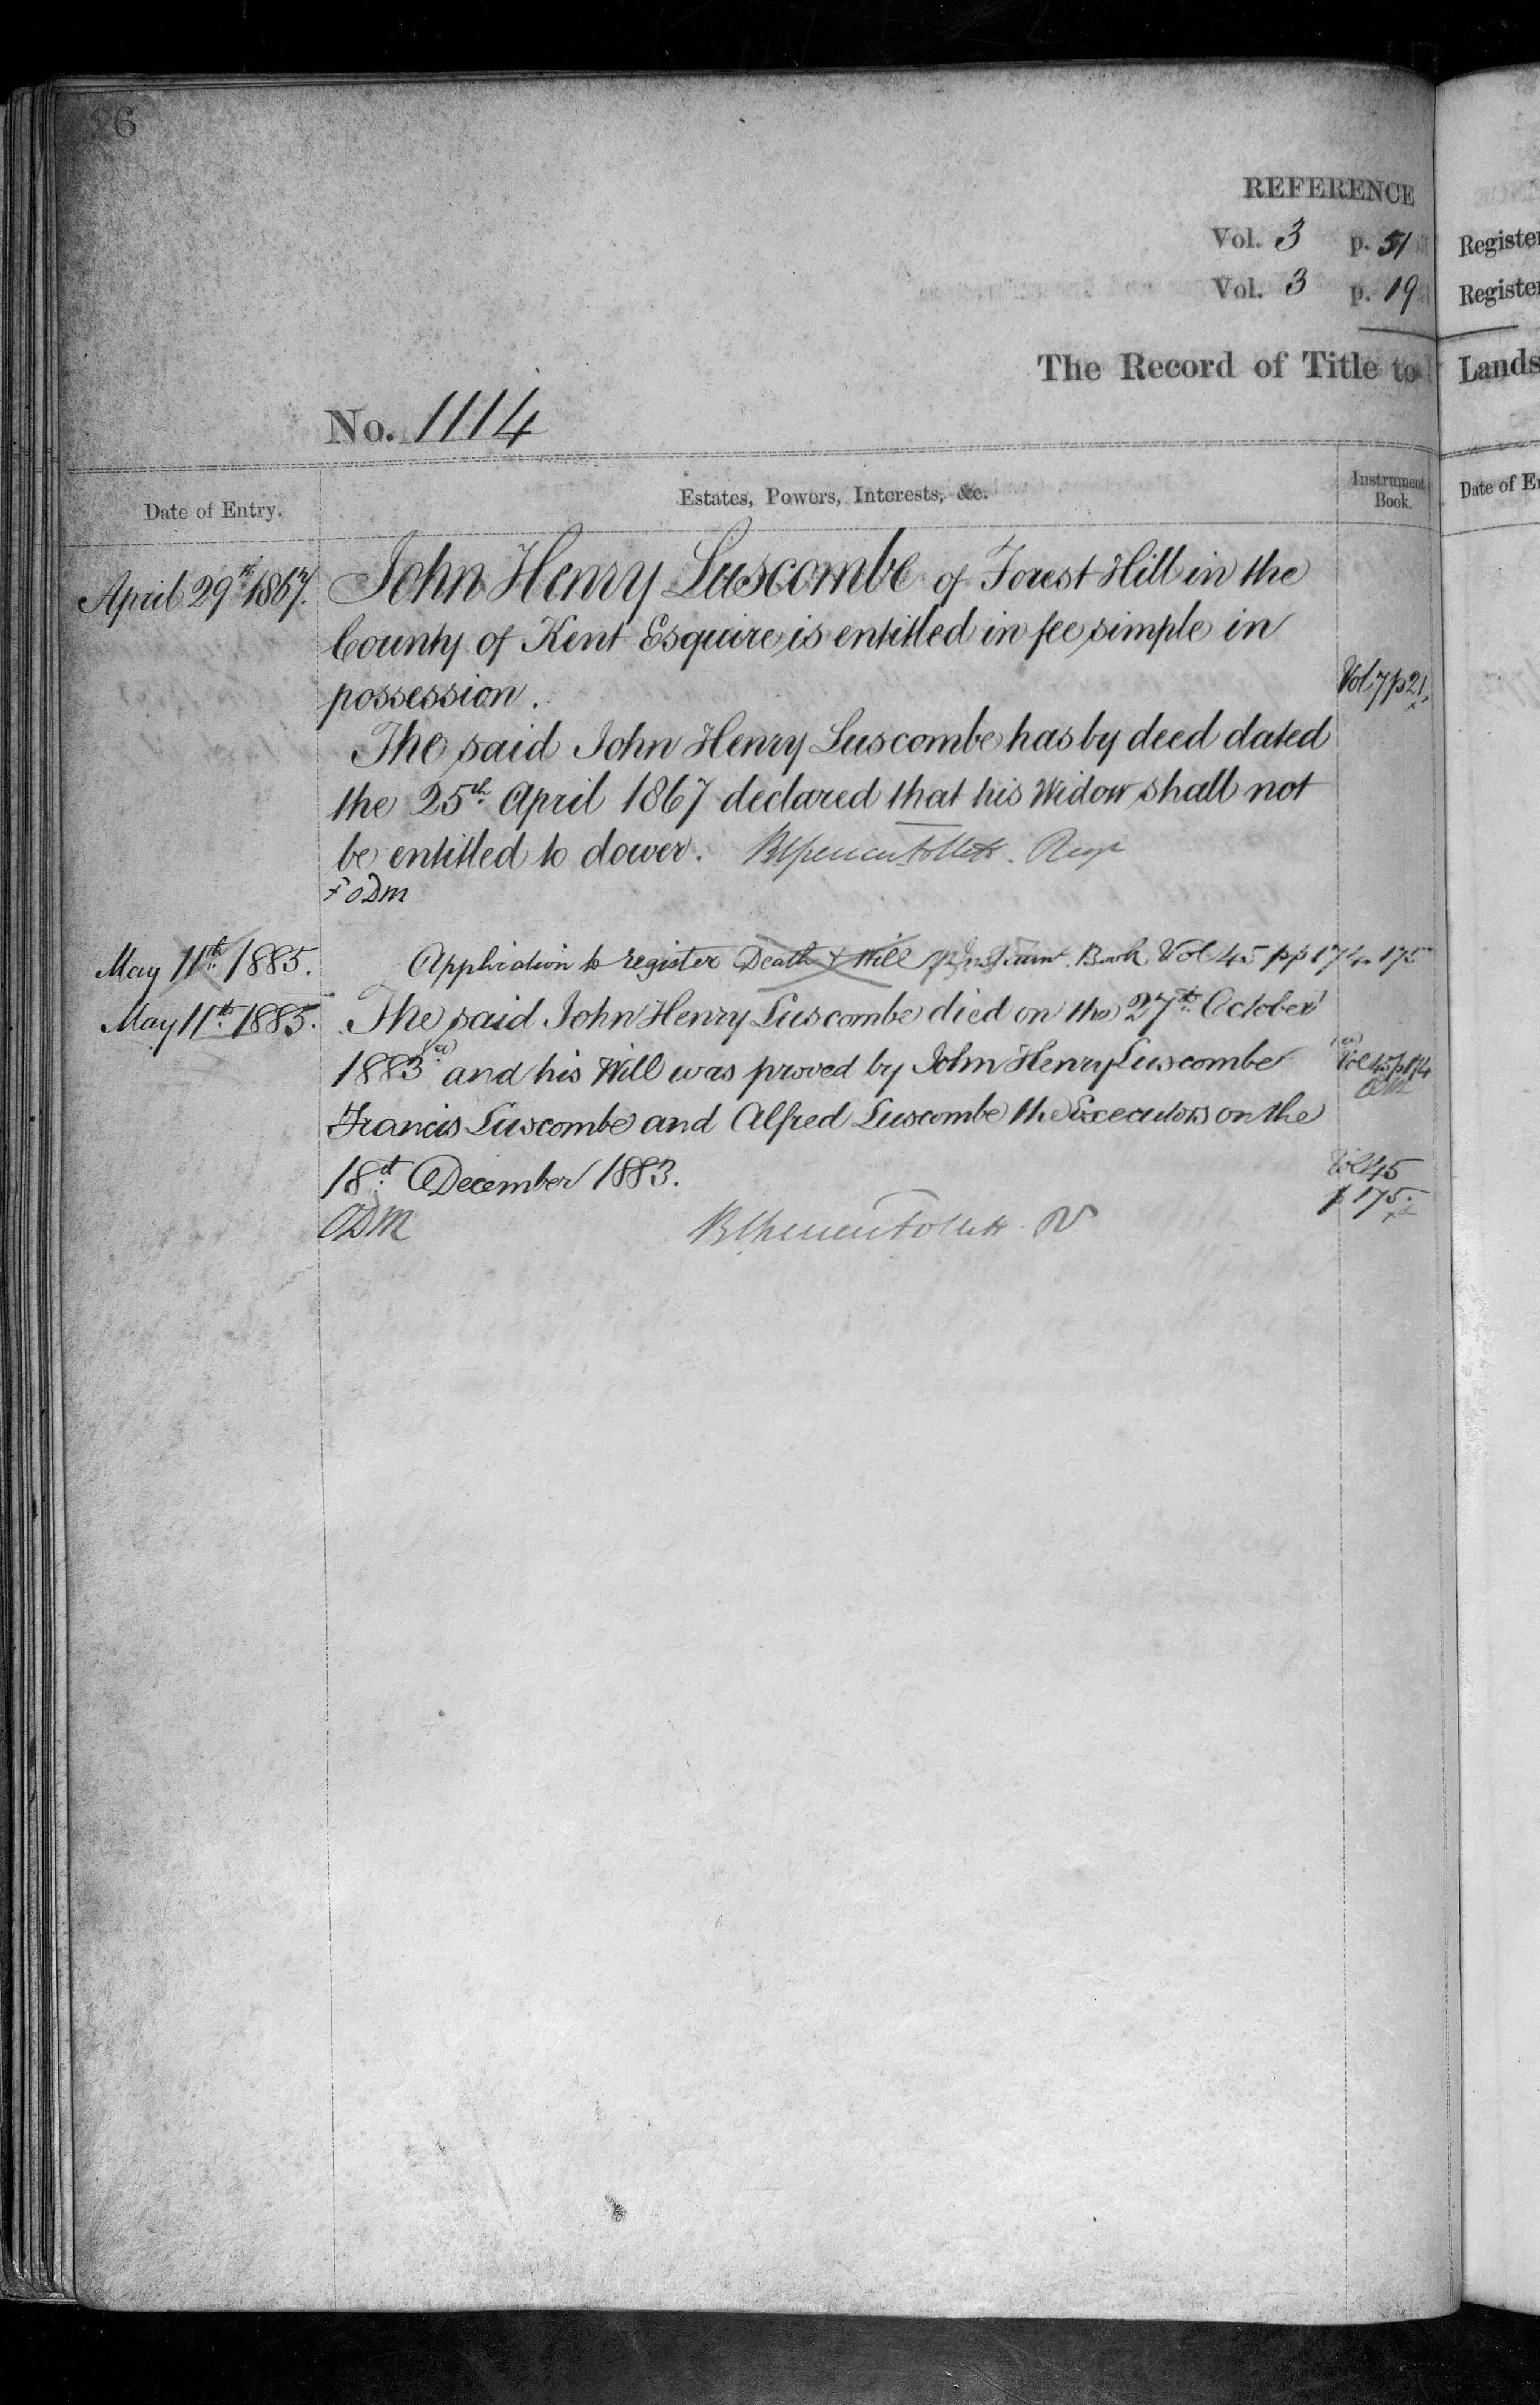 26
REFERENCE
Vol. 3 p. 51
Vol. 3 p. 19
The Record of Title to
No. 1114
Date of Entry.
Estates, Powers, Interests, &c.
Instrument Book.
April 29th 1867.
John Henry Luscombe of Forest Hill in the
County of Kent Esquire is entitled in fee simple in
possession.
Vol. 7 p 21
The said John Henry Luscombe has by deed dated
the 25th April 1867 declared that his Widow shall not
be entitled to dower.
ODM
May 11th 1885.
Application to register Death & Will Instrument Book Vol 45 pp 174 175
May 11th 1885.
The said John Henry Luscombe died on the 27th October
1883 (a) and his Will was proved by John Henry Luscombe
(a) Vol 45 p 174
Francis Luscombe and Alfred Luscombe the Executors on the
18th December 1883.
Vol 45
p 175.
ODM
Register
Register
Lands
Date of En